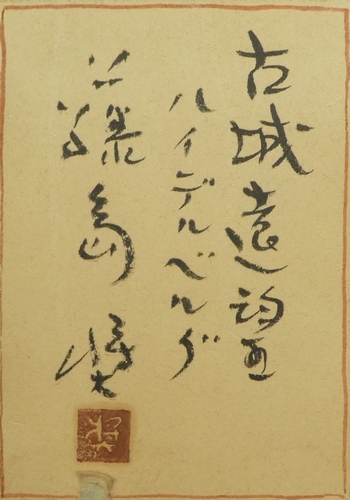 古城遠望
ハイデルベルグ
藤島奨